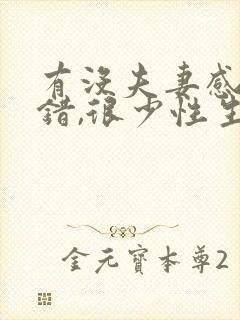 有没夫妻感
错,很少性生
金元寶本尊2